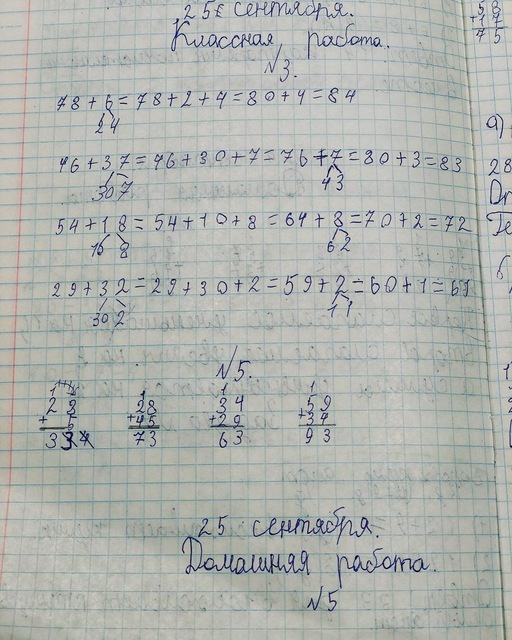 25 сентября.
Классная работа.
№3.
78+6=78+2+4=80+4=84
24
46+37=46+30+7=76+7=80+3=83
30 7 43
54+18=54+10+8=64+8=70+2=72
10 8 62
29+32=29+30+2=59+2=60+1=61
30 2 11
№5.
1 1 1
28 34 59
+45 +29 +34
73 63 93
25 сентября.
Домашняя работа.
№5
58
+17
75
а)
28